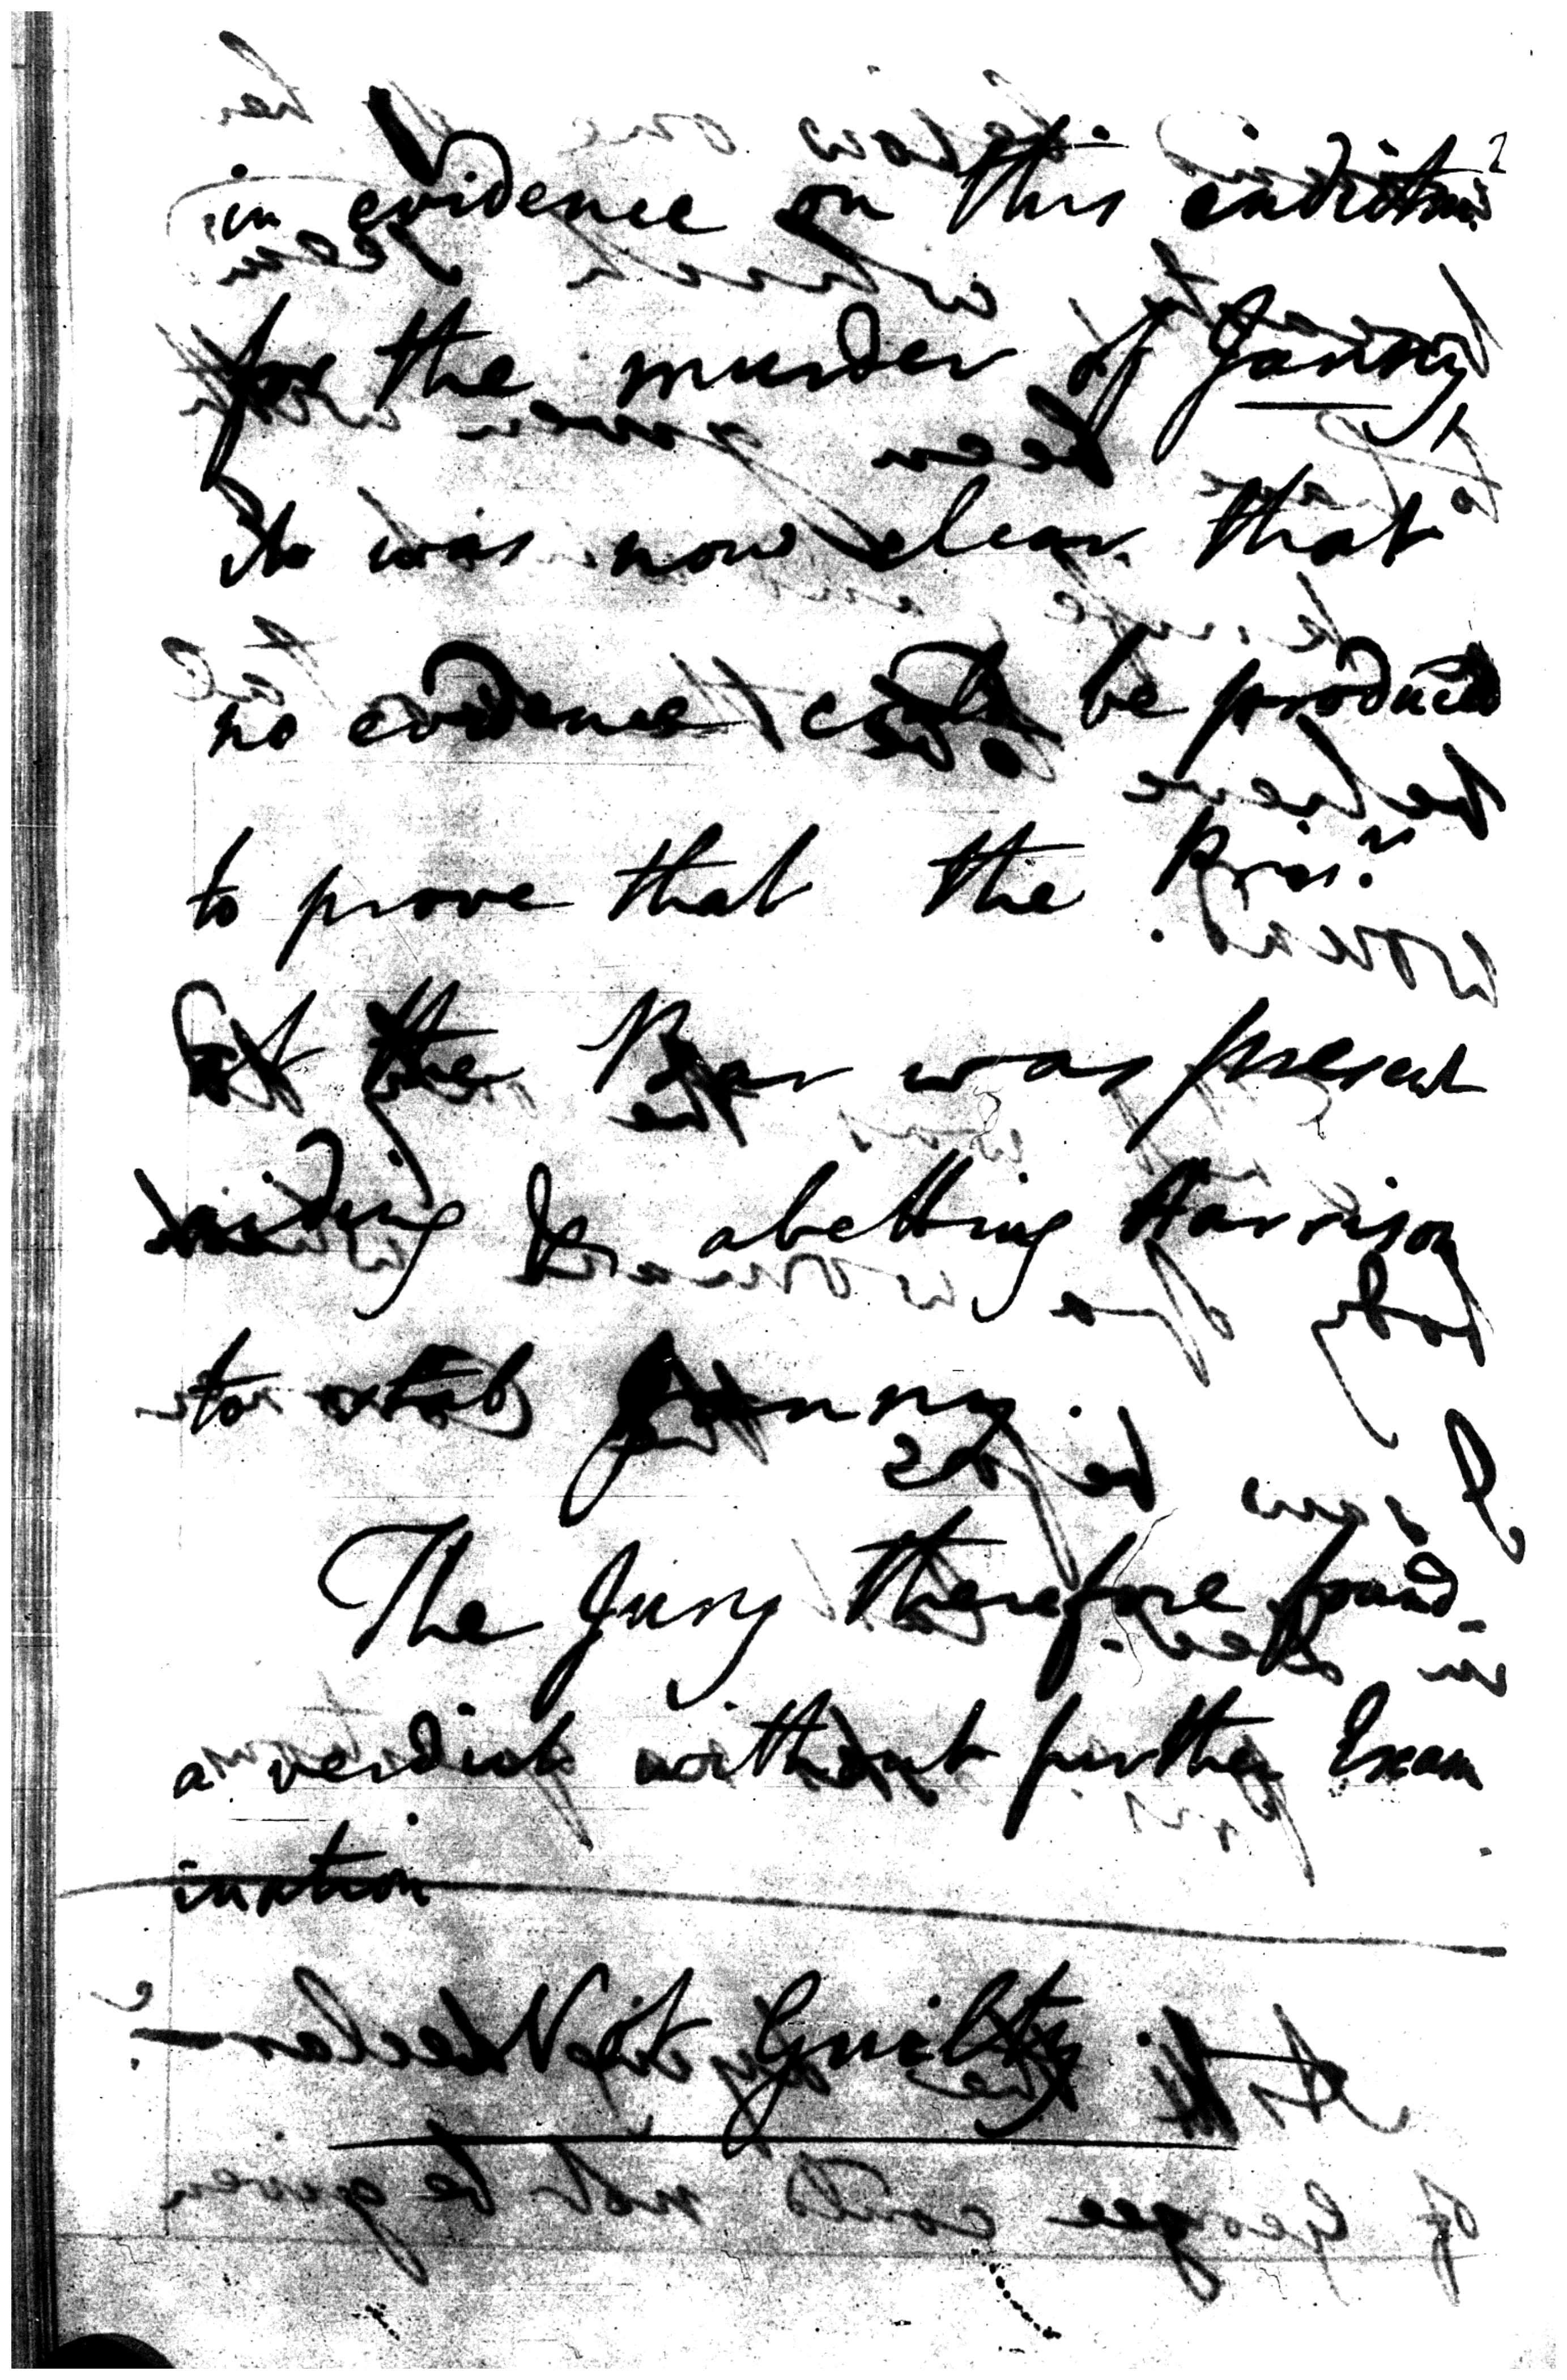 in evidence on this indictm.
for the murder of Janny
it was now clear that
no evidence could be produced
to prove that the Pris.r
at the Bar was present
aiding & abetting Harrison
to stab Janny.
The Jury therefore found
a verdict without further Exam
ination
Not Guilty